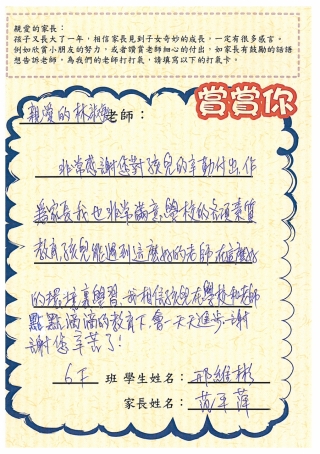 親愛的家長：
孩子又長大了一年，相信家長見到子女奇妙的成長，一定有很多感言，
例如欣賞小朋友的努力，或者讚賞老師細心的付出，如家長有鼓勵的話語
想告訴老師，為我們的老師打打氣，請填寫以下的打氣卡。
賞賞你
親愛的林淑老師：
非常感謝您對孩兒的辛勤付出，作
為家長我也非常滿意學校的各項素質
教育，孩兒能遇到這麼好的老師，在這麼好
的環境裏學習，我相信孩兒在學校和老師
點點滴滴的教育下，會一天天進步，謝
謝您，辛苦了！
6F 班 學生姓名：邢維彬
家長姓名：范平萍